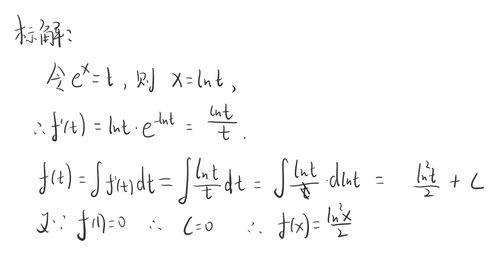 标解:
令 e^x = t , 则 x = ln t ,
∴ f'(t) = ln t · e^{-ln t} = \frac{ln t}{t} .
f(t) = ∫ f'(t) dt = ∫ \frac{ln t}{t} dt = ∫ ln t · d ln t = \frac{ln² t}{2} + C
又∵ f(1) = 0 ∴ C = 0 ∴ f(x) = \frac{ln² x}{2}